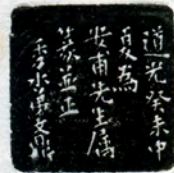 道光癸未中
夏為
安甫先生属
篆並正
秀水萬文鼎